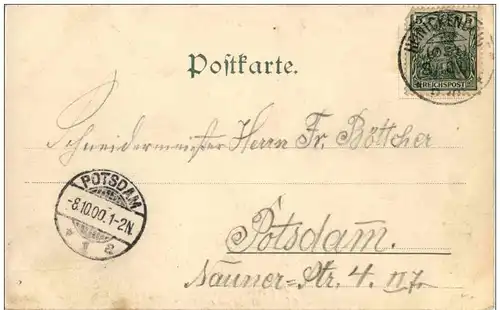 Postkarte.
REICHSPOST
Schneidermeister Herrn Fr. Böttcher
POTSDAM
-8.10.00.1-2N.
* 1 a
Potsdam.
Nauner-Str. 4. II.